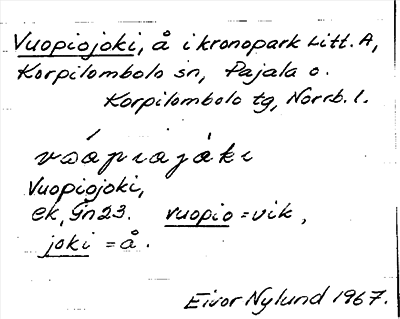 Vuopiojoki, å i kronopark Litt. A,
Korpilombolo sn, Pajala o.
Korpilombolo tg, Norrb. l.
Vuopiojoki,
ek, Gn 23. vuopio = vik,
joki = å.
Eivor Nylund 1967.